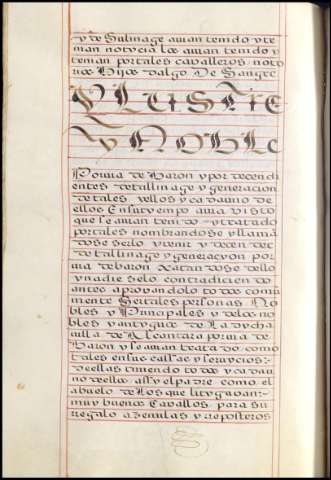 y de Sulinage auian tenido y te
nian notycia los auian tenido y
tenian por tales caualleros noto
rios Hijos dalgo De Sangre
YLUSTRE
y NOBLE
Por via de Baron y por decendi
entes de tal linage y generacion
de tales y ellos y cada uno de
ellos En su tiempo auia visto
que se auian tenido y tratado
por tales nombrandose y llama
dose serlo y venir y decender
de tal linage y generacyon por
via de baron Xatandose dello
y nadie se lo contradicien do
antes aprouandolo todos comu
mente Ser tales personas No
bles y Principales y de los no
bles y antyguos de La dycha
uilla de Alcantara por via de
Baron y se auian tratado como
tales en sus cassas y seruycios
de ellas tiniendo todos y cada u
no dellos assy el padre como el
abuelo de Los que lytygauan
muy buenos Cauallos para su
regalo azemilas y reposteros